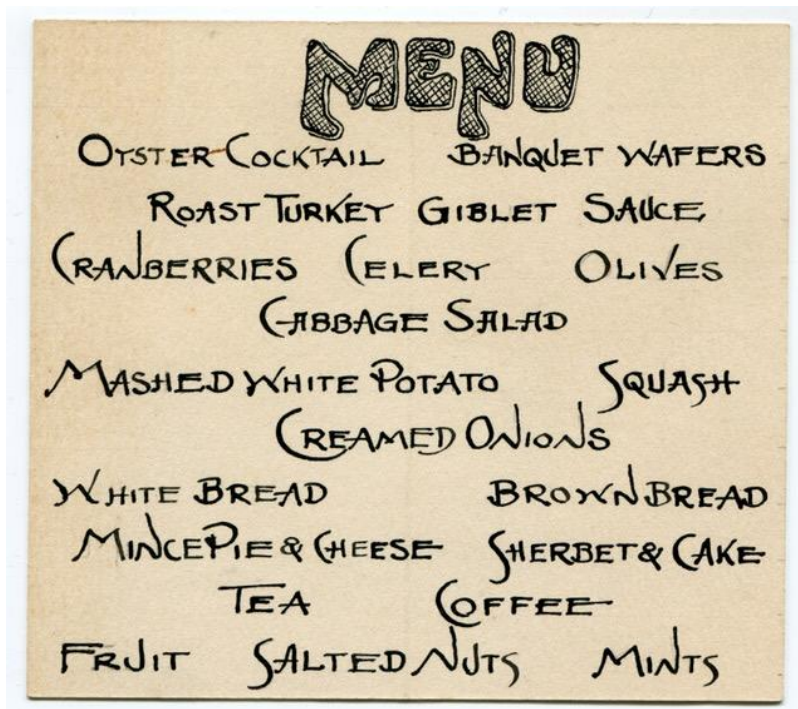 MENU
OYSTER COCKTAIL BANQUET WAFERS
ROAST TURKEY GIBLET SAUCE
CRANBERRIES CELERY OLIVES
CABBAGE SALAD
MASHED WHITE POTATO SQUASH
CREAMED ONIONS
WHITE BREAD BROWN BREAD
MINCE PIE & CHEESE SHERBET & CAKE
TEA COFFEE
FRUIT SALTED NUTS MINTS